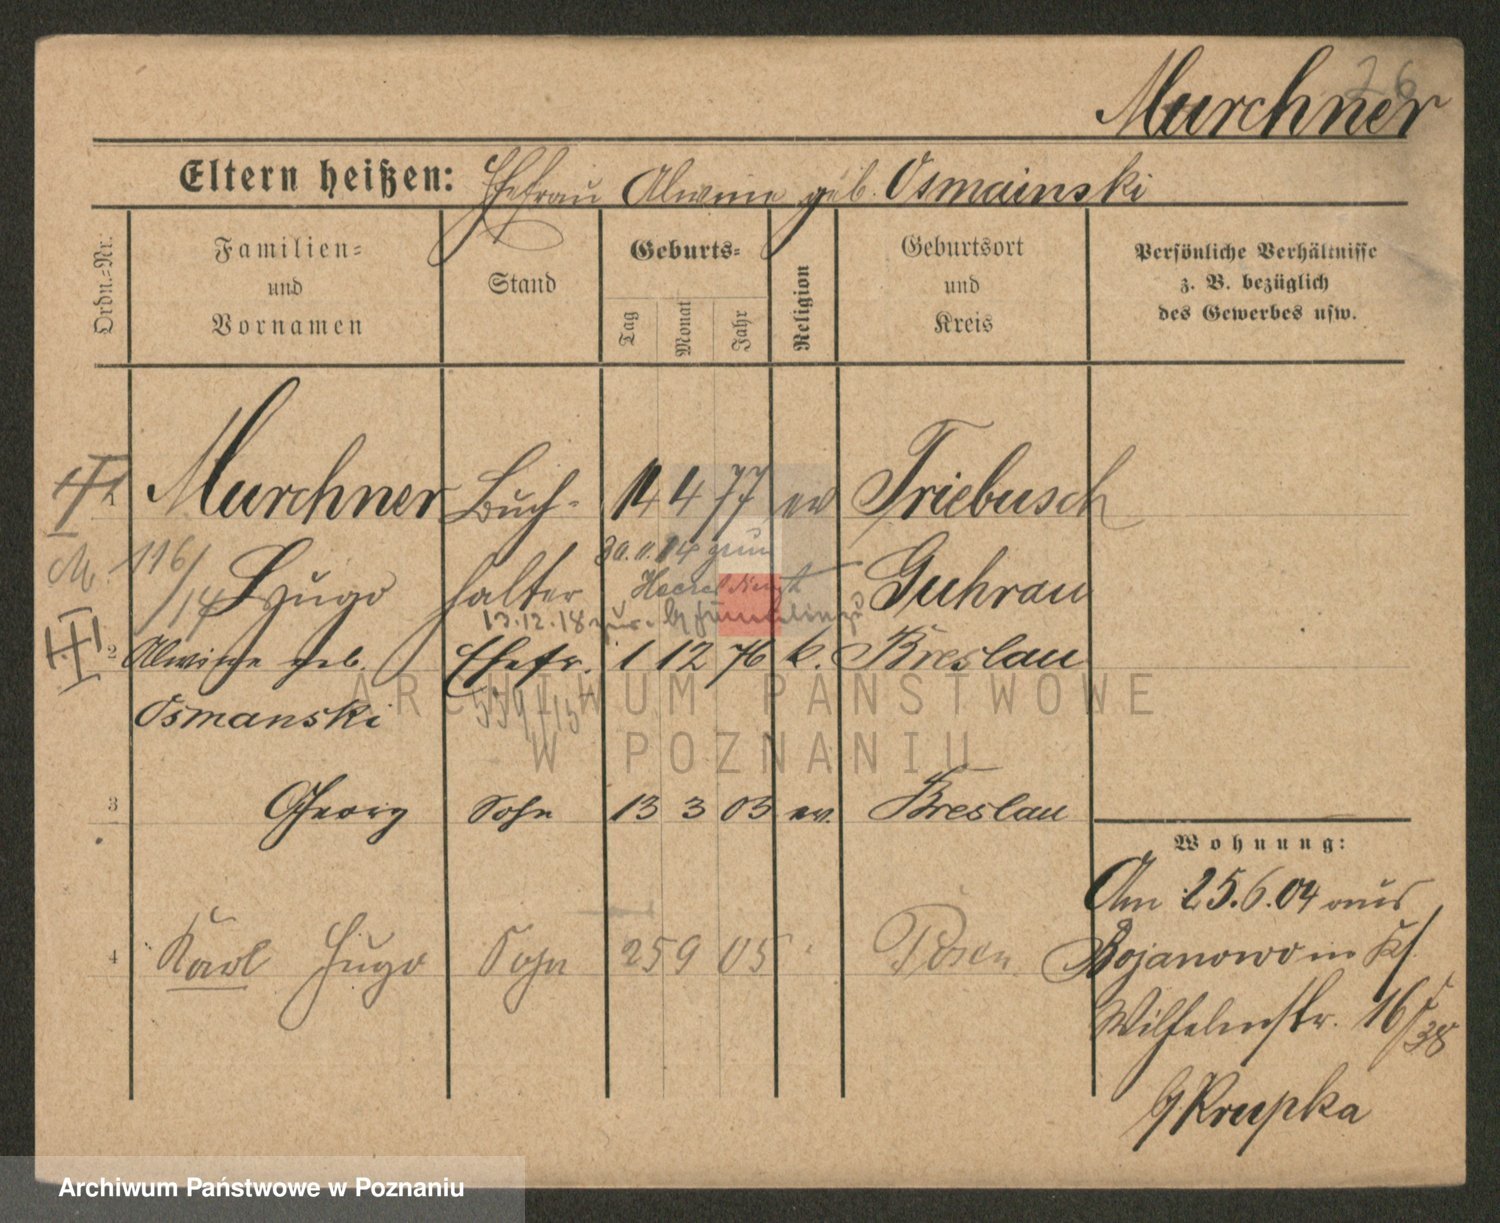 26
Murchner
Eltern heißen: Ehefrau Alwine geb. Osmainski
Ordn.=Nr.
Familien=
und
Vornamen
Stand
Geburts=
Tag
Monat
Jahr
Religion
Geburtsort
und
Kreis
Persönliche Verhältnisse
z. B. bezüglich
des Gewerbes usw.
Murchner Buch- 14 4 77 ev Triebusch
116/14 Hugo halter Guhrau
13.12.18
2 Alwine geb. Ehefr. 1 12 76 k. Breslau
Osmanski
ARCHIWUM PAŃSTWOWE
W POZNANIU
3 Georg Sohn 13 3 03 ev. Breslau
Wohnung:
Am 25.6.04 aus
4 Karl Hugo Sohn 25 9 05 Posen
Bojanowo in
Wilhelmstr. 16
Krupka
Archiwum Państwowe w Poznaniu